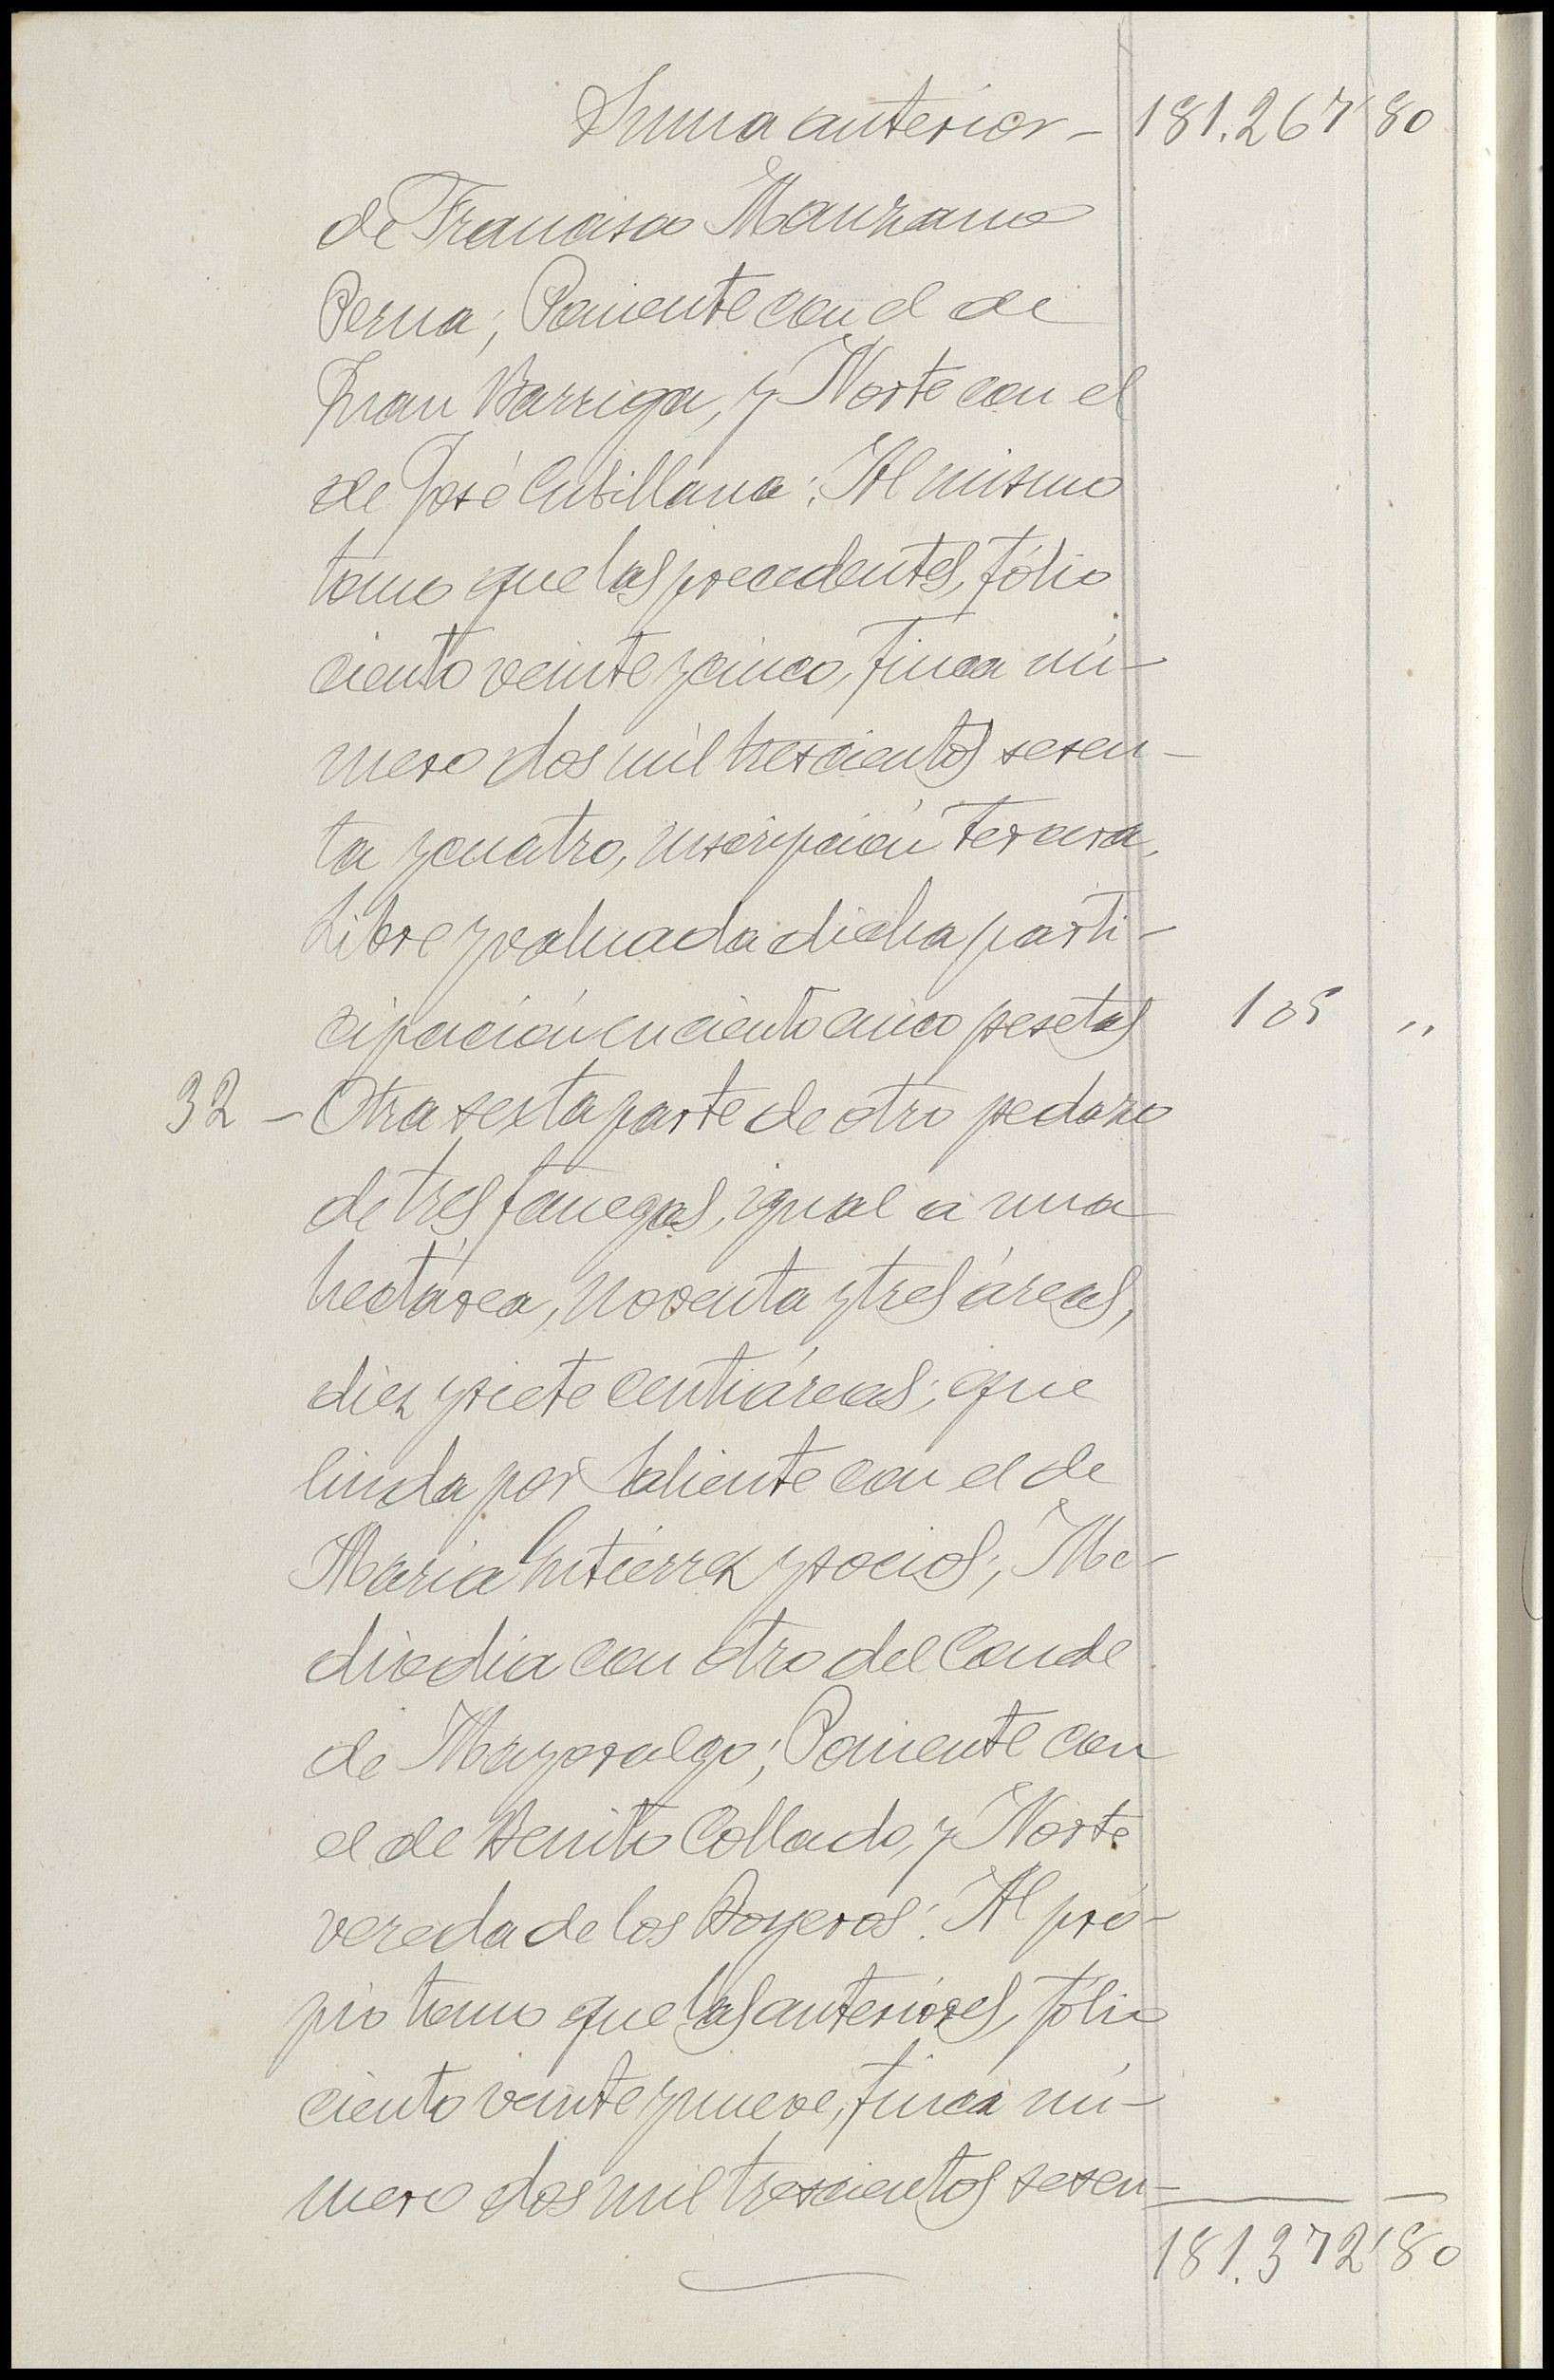 Suma anterior - 181.267'80
de Francisco Manzano
Perna; Poniente con el de
Juan Barriga, y Norte con el
de José Cubillana: Al mismo
tomo que las precedentes, fólio
ciento veinte y cinco, finca nú-
mero dos mil trescientos sesen-
ta y cuatro, inscripción tercera,
Libre y valuada dicha parti-
cipación en ciento cinco pesetas 105 "
32 - Otra sexta parte de otro pedazo
de tres fanegas, igual a una
hectárea, noventa y tres áreas,
diez y siete centiáreas; que
linda por Saliente con el de
Maria Gutiérrez y socios; Me-
diodia con otro del Conde
de Mayoralgo; Poniente con
el de Benito Collado, y Norte
vereda de los Boyeros: Al pró-
pio tomo que las anteriores, fólio
ciento veinte y nueve, finca nú-
mero dos mil trescientos sesen-
181.372'80